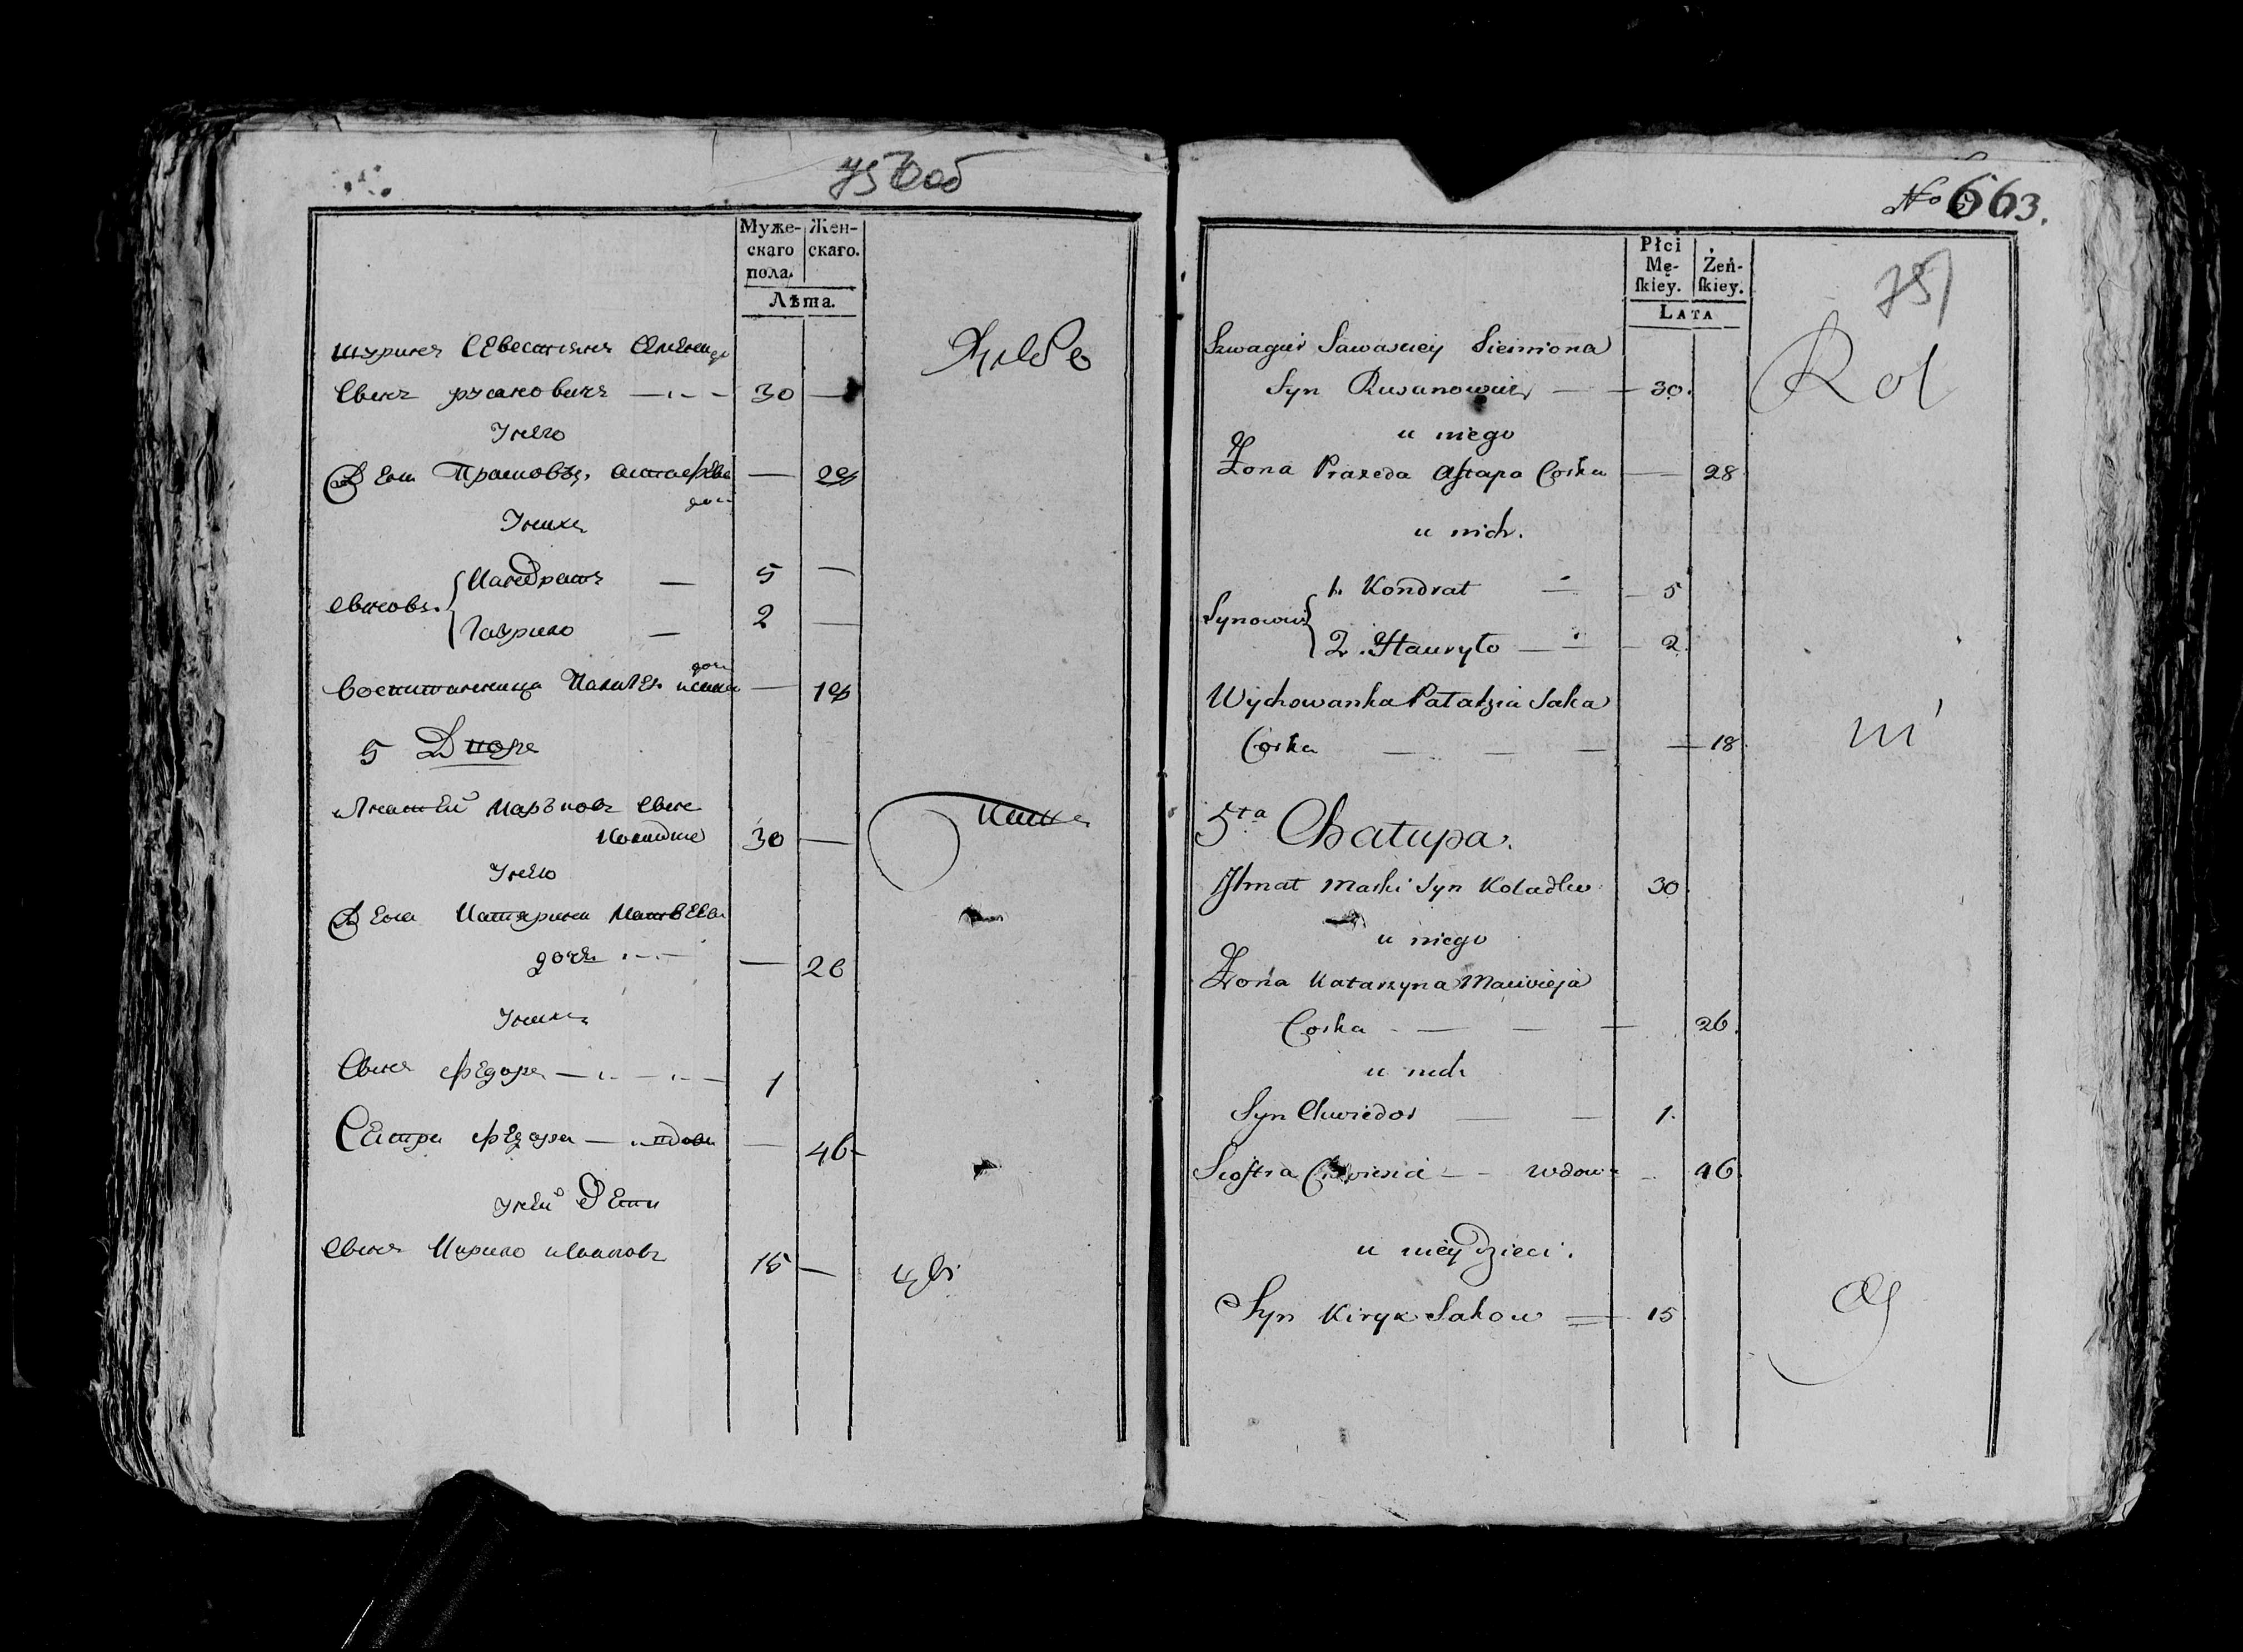 750об
Муже-
скаго
пола.
Жен-
скаго.
Лѣта.
шуринъ Севестиянъ Семена
Сынъ русановичъ 30 —
У него
Жена Прасковья астафьева — 28
дочь
У нихъ
Сыновья
Кондратъ — 5 —
Гаврило — 2 —
воспитанница Палагея — 18
дочь
5 Дворъ
Марковъ Сынъ
30 —
У него
Жена Катерина Матвеева
дочь — 26
У нихъ
Сынъ Федоръ — 1
Сестра — вдова — 46
У ней Дети
Сынъ Кирило 15 —
No 663.
751
Płci
Mę-
ſkiey.
Żeń-
ſkiey.
LATA
Szwagier Sawasciey Siemiona
Syn Rusanowicz — 30.
Rol
u niego
Żona Praxeda Aſtapa Corka — 28
u nich.
Synowie
1. Kondrat — 5
2. Hauryło — 2.
Wychowanka Pałażia Saka
Corka — — — 18.
ni
5ta Chałupa.
Ihnat Maski Syn Koladko 30.
u niego
Żona Katarzyna Macwieja
Corka — — — 26.
u nich
Syn Chwiedor — — 1.
Sioſtra — wdowa 46.
u niey dzieci.
Syn Kiryk Sakow 15